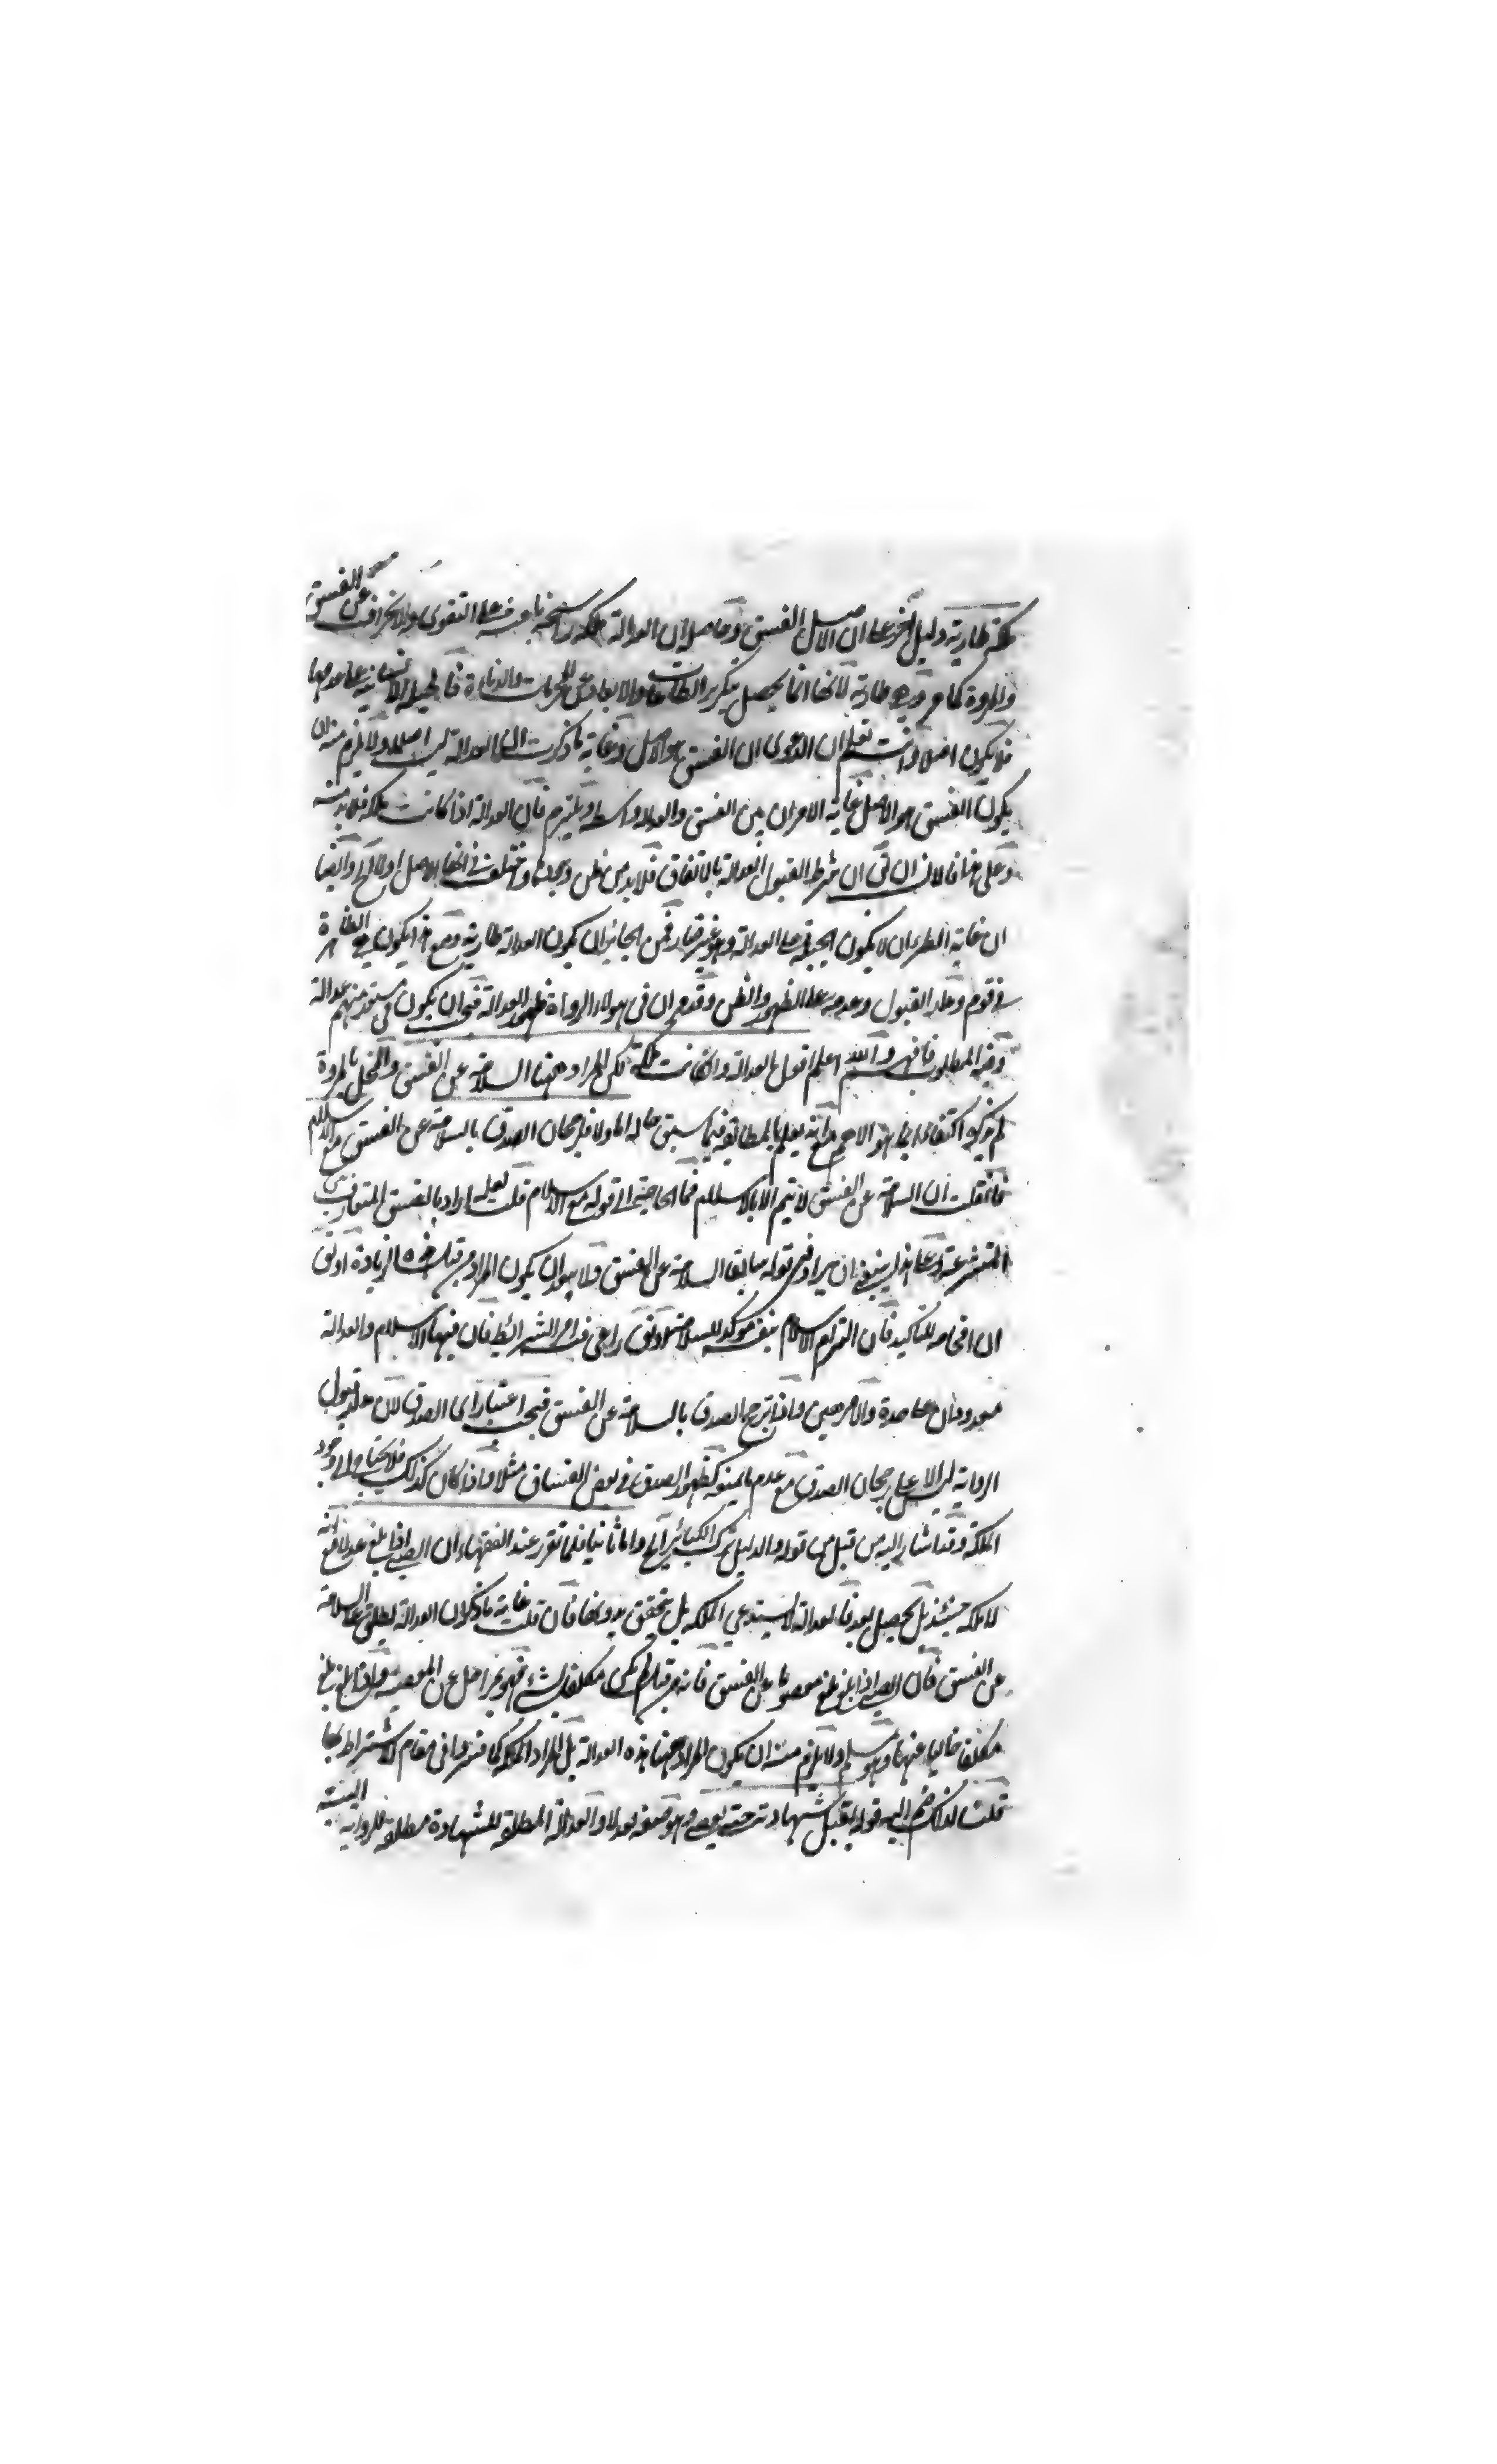 ملكة طارية دليل آخر على ان الاصل الفسق وحاصله ان العدالة ملكة راسخة باعثة على التقوى والانحراف عن الفسق
والمروة كما مر وهي طارية لانها انما يحصل بتكرير الطاعات والابعاد عن المحرمات
فلا يكون اصلا وانت تعلم ان الدعوى ان الفسق هو الاصل وغاية ما ذكرت ان العدالة ليست اصلا ولا يلزم منه ان
يكون الفسق هو الاصل غاية الامر ان بين الفسق والعدالة واسطة ويلتزم فان العدالة اذا كانت ملكة فلا بد منه
وعلى هذا فالاولى ان شرط القبول العدالة بالاتفاق فلا بد من ظن وجودها واختلف في انها الاصل اولا الخ وايضا
ان غاية الطريان لا يكون الجبلية على العدالة وهو غير ضار فمن الجائز ان يكون العدالة طارية ومع هذا يكون هي الظاهرة
في قوم ومدار القبول وعدمه على الظهور والظن وقد مر ان في هولاء الرواة ظهور العدالة فيجب ان يكون مستور منهم عدالة
وفيه المطلوب فافهم والله اعلم اقول العدالة وان كانت ملكة لكن المراد ههنا السلامة عن الفسق والمخل بالمروة
لم يذكره اكتفاء بما هو الاهم مع انه يعلم بالمطابقة فيما سبق فرجحان الصدق بالسلامة عن الفسق مع الاسلام
فان قلت ان السلامة عن الفسق لا يتم الا بالاسلام فما الحاجة الى قوله مع الاسلام قلت لعله اراد بالفسق المتعارف
المتشرعة وعلى هذا ينبغي ان يراد في قوله سابقا السلامة عن الفسق ولا يبعد ان يكون المراد من قبل هذه الزيادة اوفق
ان اقحامه للتاكيد فان التزام الاسلام بنفسه موكد للسلامة اوفق راعى فيه امر الشرائط فان فيها الاسلام والعدالة
معدودان على حدة والامر هين واذا ترجح الصدق بالسلامة عن الفسق فيجب اعتباره اي الصدق لان مدار قبول
الرواية ليس الا على رجحان الصدق مع عدم ما يمنعه كظهور الصدق في بعض الفساق مثلا واذا كان كذلك فلا يحتاج الى وجود
الملكة وقد اشار اليه من قبل من قوله والدليل ترك الكبائر الخ واما ثانيا فلما تقرر عند الفقهاء ان الصبي اذا بلغ عدلا مع انه
لا ملكة حينئذ بل يحصل بعد فالعدالة لا يستدعي الملكة بل يتحقق بدونها فان قلت غاية ما ذكر ان العدالة يطلق على السلامة
عن الفسق فان الصبي اذا بلغ بلغ معصوما عن الفسق فانه من قبل لم يكن مكلفا بشئ فهو بمراحل عن المعصية واذا بلغ بلغ
مكلفا خاليا عنها وهو مسلم ولا يلزم منه ان يكون المراد ههنا هذه العدالة بل المراد الملكة كما فسروا في مقام الاشتراط بها
قلت لذلك ضم اليه قوله يقبل شهادته حتى يعصي وهو صفة لعدلا والعدالة المطلقة للشهادة مطلقة للرواية البتة